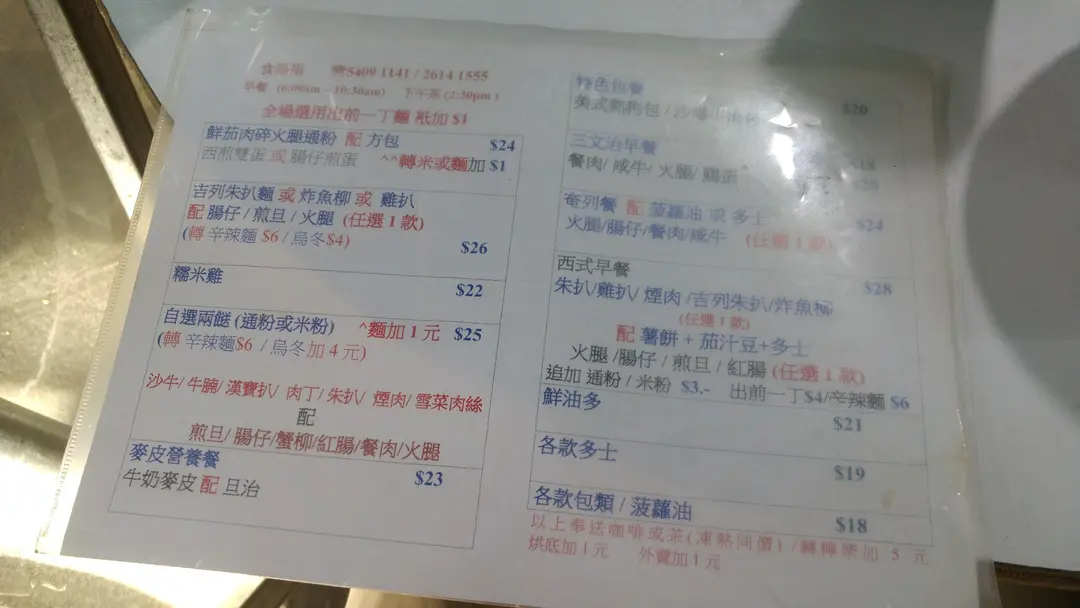 食 福 ☎5409 1141 / 2614 1555
早餐 (6:00am – 10:30am) 下午茶 (2:30pm )
全場選用出前一丁麵 祇加 $1
鮮茄肉碎火腿通粉 配 方包 $24
西煎雙蛋 或 腸仔煎蛋 ^^轉米或麵加 $1
吉列朱扒麵 或 炸魚柳 或 雞扒
配 腸仔 / 煎旦 / 火腿 (任選 1 款)
(轉 辛辣麵 $6 / 烏冬$4) $26
糯米雞 $22
自選兩餸 (通粉或米粉) ^麵加 1 元 $25
(轉 辛辣麵$6 / 烏冬加 4 元)
沙牛/ 牛腩/ 漢寶扒/ 肉丁/ 朱扒/ 煙肉/ 雪菜肉絲
配
煎旦/ 腸仔/蟹柳/紅腸/餐肉/火腿
麥皮營養餐 $23
牛奶麥皮 配 旦治
特色包餐
美式熱狗包 / 沙嗲牛肉包 $20
三文治早餐
餐肉/ 咸牛/ 火腿/ 鷄蛋
奄列餐 配 菠蘿油 或 多士 $24
火腿/腸仔/餐肉/咸牛 (任選 1 款)
西式早餐 $28
朱扒/雞扒/ 煙肉 /吉列朱扒/炸魚柳
(任選 1 款)
配 薯餅 + 茄汁豆+多士
火腿 /腸仔 / 煎旦 / 紅腸 (任選 1 款)
追加 通粉 / 米粉 $3.- 出前一丁$4/辛辣麵 $6
鮮油多 $21
各款多士 $19
各款包類 / 菠蘿油 $18
以上奉送咖啡或茶(凍熱同價) /轉檸樂加 5 元
烘底加 1 元 外賣加 1 元